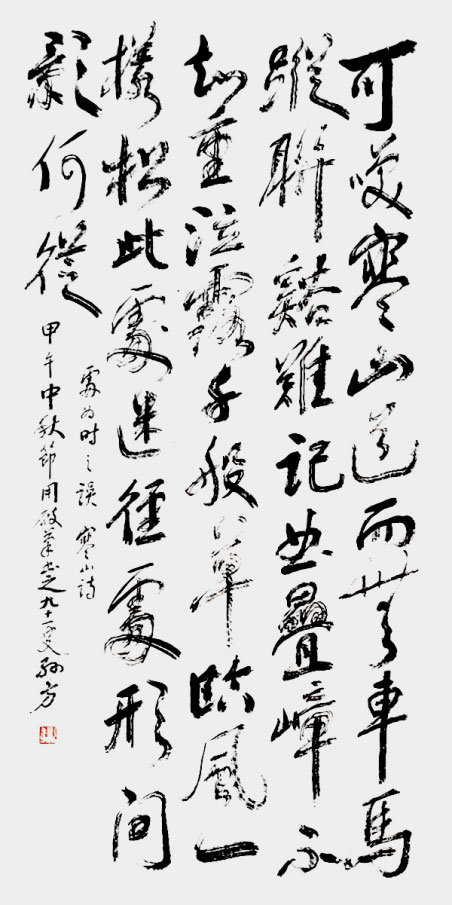 可咲寒山道而無車馬
蹤聯谿難記曲疊嶂不
知重泣露千般草臨風一
樣松此處迷徑處形問
影何從
處为时之誤 寒山诗
甲午中秋節用破筆書之九十一叟孙方